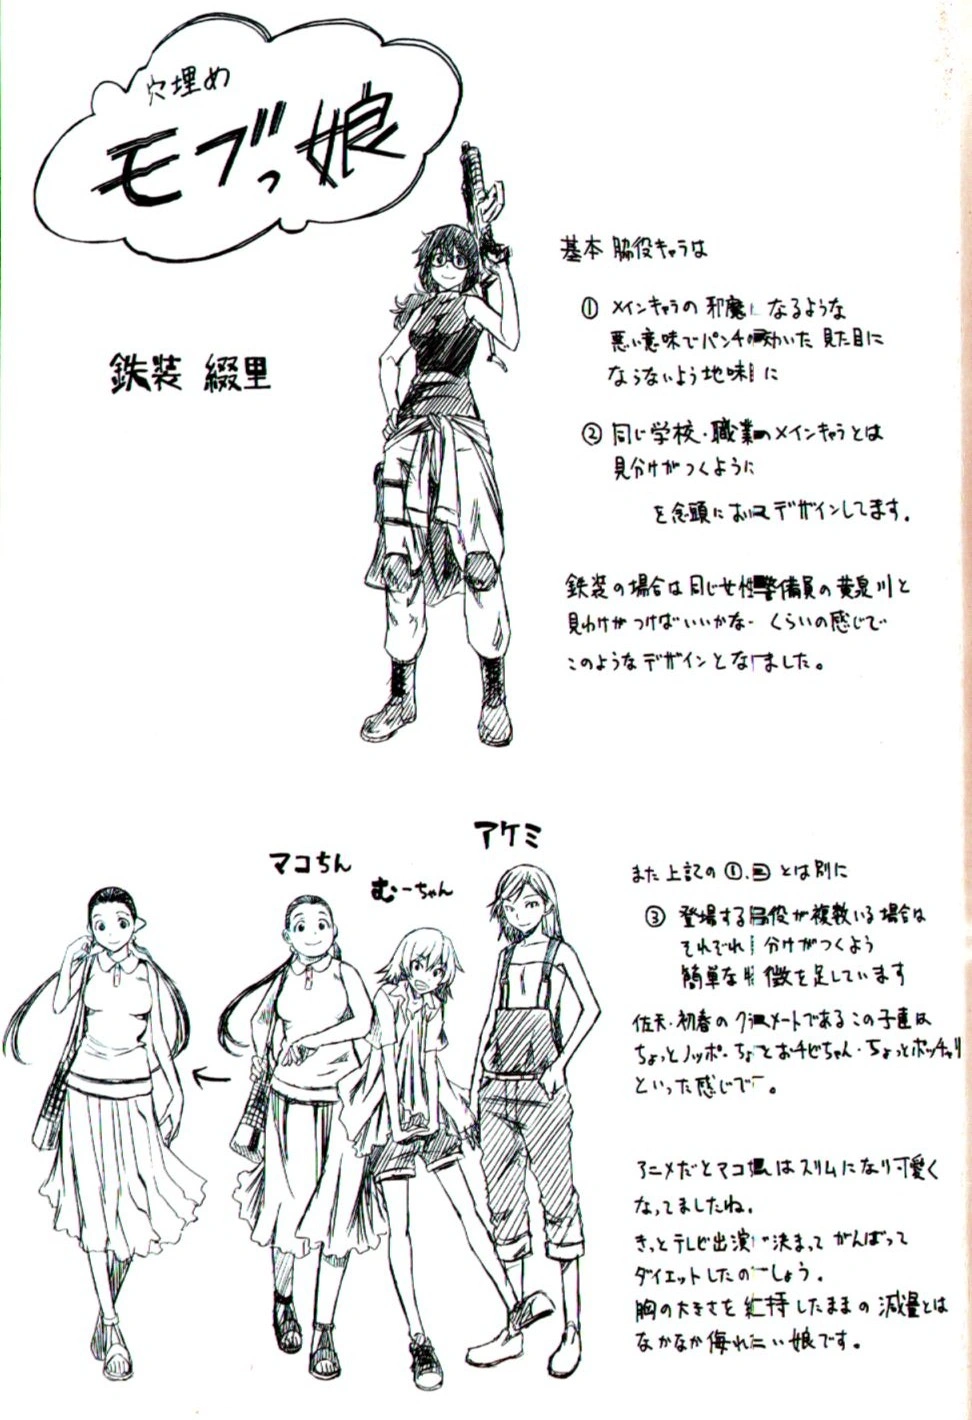 穴埋め
モブっ娘
鉄装 綴里
基本 脇役キャラは
① メインキャラの 邪魔になるような
悪い意味でパンチの効いた 見た目に
ならないよう地味に
② 同じ学校・職業のメインキャラとは
見分けがつくように
を念頭においてデザインしてます。
鉄装の場合は同じ女性警備員の黄泉川と
見わけがつけばいいかなー くらいの感じで
このようなデザインとなりました。
アケミ
マコちん
むーちゃん
また上記の①、②とは別に
③ 登場する脇役が複数いる場合は
それぞれ 分けがつくよう
簡単な特徴を足しています
佐天・初春のクラスメートであるこの子達は
ちょっとノッポ・ちょっとおチビちゃん・ちょっとポッチャリ
といった感じで。
アニメだとマコ はスリムになり可愛く
なってましたね。
きっとテレビ出演が決まって がんばって
ダイエットしたのでしょう。
胸の大きさを維持したままの 減量とは
なかなか侮れない娘です。